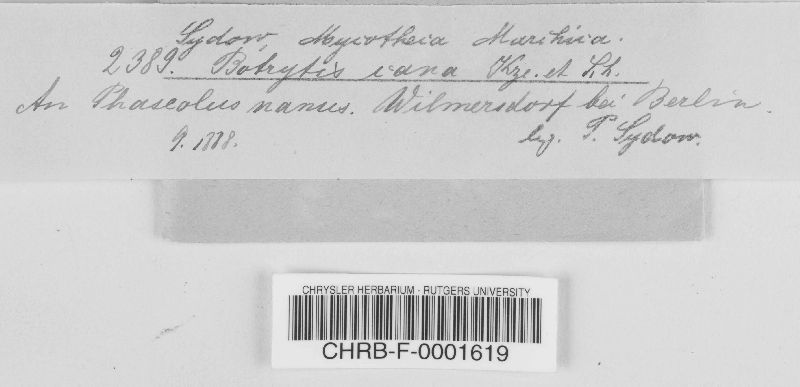 Sydow, Mycotheca Marchica.
2389. Botrytis cana Kze. et Sch.
An Phaseolus nanus. Wilmersdorf bei Berlin.
9. 1888. leg. P. Sydow.
CHRYSLER HERBARIUM - RUTGERS UNIVERSITY
CHRB-F-0001619